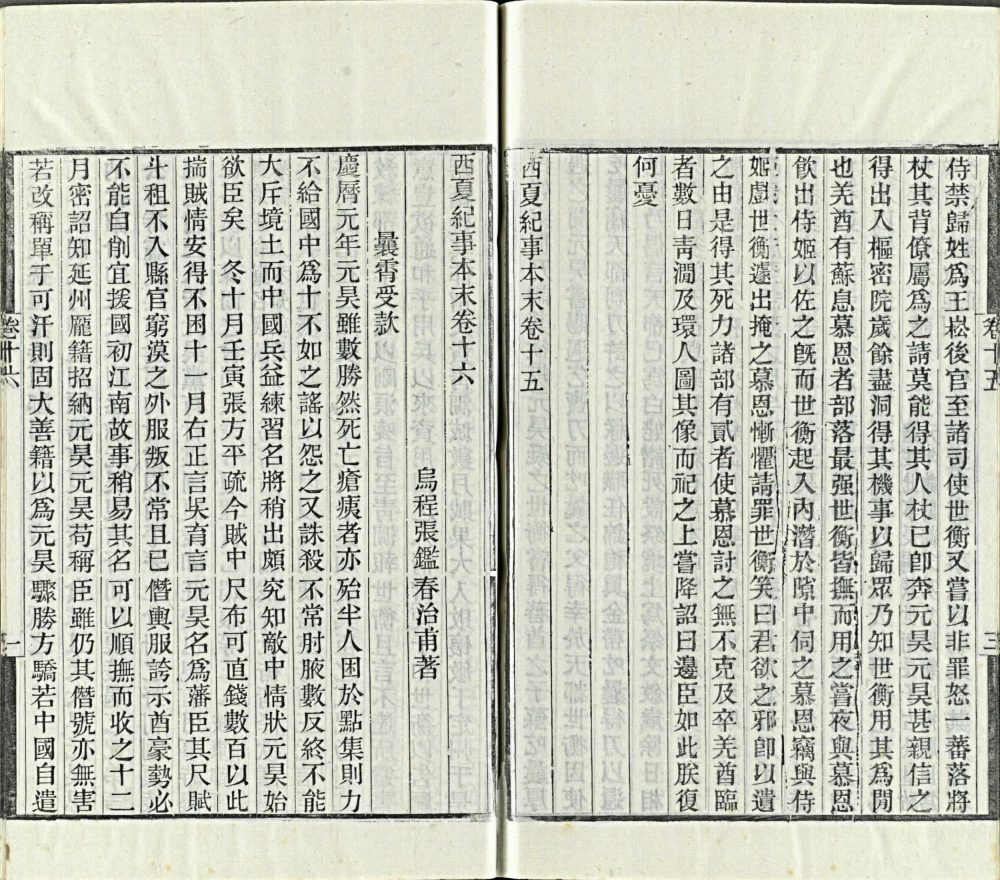 侍禁歸姓爲王崧後官至諸司使世衡又嘗以非罪怒一蕃落將
杖其背僚屬爲之請莫能得其人杖已卽奔元昊元昊甚親信之
得出入樞密院歲餘盡洞得其機事以歸眾乃知世衡用其爲閒
也羌酋有蘇息慕恩者部落最强世衡皆撫而用之嘗夜與慕恩
飮出侍姬以佐之旣而世衡起入內潛於隙中伺之慕恩竊與侍
姬戲世衡遽出掩之慕恩慚懼請罪世衡笑曰君欲之邪卽以遺
之由是得其死力諸部有貳者使慕恩討之無不克及卒羌酋臨
者數日靑澗及環人圖其像而祀之上嘗降詔曰邊臣如此朕復
何憂
西夏紀事本末卷十五
卷十五
三
西夏紀事本末卷十六
烏程張鑑春治甫著
曩霄受款
慶曆元年元昊雖數勝然死亡瘡痍者亦殆半人困於點集則力
不給國中爲十不如之謠以怨之又誅殺不常肘腋數反終不能
大斥境土而中國兵益練習名將稍出頗究知敵中情狀元昊始
欲臣矣 冬十月壬寅張方平疏今賊中尺布可直錢數百以此
揣賊情安得不困十一月右正言吳育言元昊名爲藩臣其尺賦
斗租不入縣官窮漠之外服叛不常且已僭輿服誇示酋豪勢必
不能自削宜援國初江南故事稍易其名可以順撫而收之十二
月密詔知延州龐籍招納元昊元昊苟稱臣雖仍其僭號亦無害
若改稱單于可汗則固大善籍以爲元昊驟勝方驕若中國自遣
卷十六
一